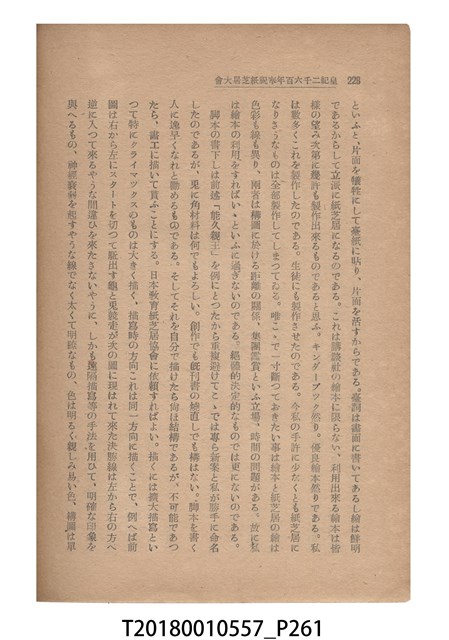 皇紀二千六百年奉祝紙芝居大會
228
といふと、片面を犠牲にして臺紙に貼り、片面を活すからである。臺詞は畫面に書いてあるし繪は鮮明
であるからして立派に紙芝居になるのである。これは講談社の繪本に限らない、利用出來る繪本は皆
樣の望み次第に幾許も製作出來るものであると思ふ。キンダーブツク然り。優良繪本然りである。私
は數多くこれを製作したのである。生徒にも製作させたのである。今私の手許に少なくとも紙芝居に
なりさうなものは全部製作してしまつてゐる。唯こゝで一寸斷つておきたい事は繪本と紙芝居の繪は
色彩も線も異り、兩者は構圖に於ける距離の關係、集團鑑賞といふ立場、時間の問題がある。故に私
は繪本の利用をすればいゝといふに過ぎないのである。絕體的決定的なものでは更にないのである。
脚本の書下しは前述「能久親王」を例にとつたから重複避けてこゝでは專ら新案と私が勝手に命名
したのであるが、兎に角材料は何でもよろしい。創作でも旣刊書の繪直しでも構はない。脚本を書く
人に逸早くなれと勸めるものである。そしてそれを自分で描けたら尙ほ結構であるが、不可能であつ
たら、畫工に描いて貰ふことにする。日本敎育紙芝居協會に依賴すればよい。描くには擴大描寫とい
つて特にクライマツクスのものは大きく描く、描寫時の方向これは同一方向に描くことで、例へば前
圖は右から左にスタートを切つて駈出す龜と兎競走が次の圖に現はれて來た決勝線は左から右の方へ
逆に入つて來るやうな間違ひを來たさないやうに、しかも遠隔描寫等の手法を用ひて、明確な印象を
與へるもの、神經衰弱を起すやうな線でなく太くて明瞭なもの、色は明るく親しみ易い色、構圖は單
T20180010557_P261